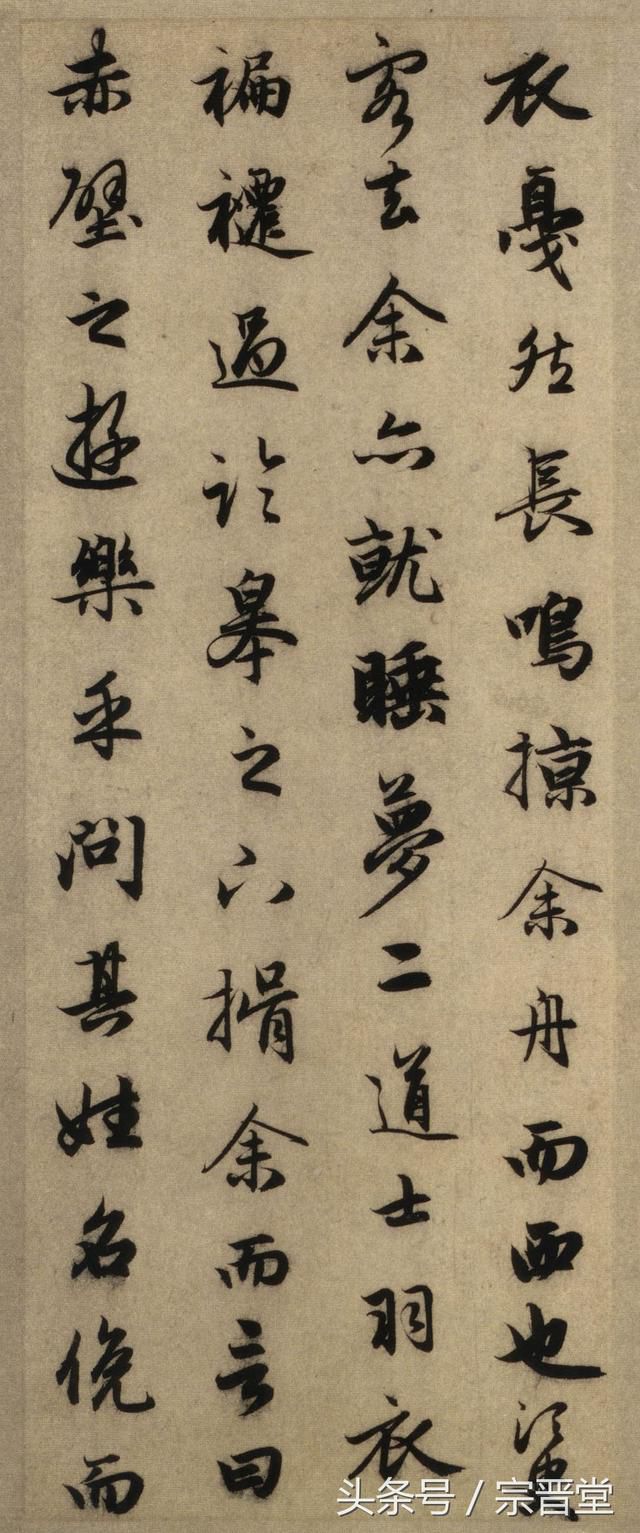 衣戛然長鳴掠余舟而西也須臾
客去余亦就睡夢二道士羽衣
褊褼過臨皋之下揖余而言曰
赤壁之遊樂乎問其姓名俛而
头条号 / 宗晋堂